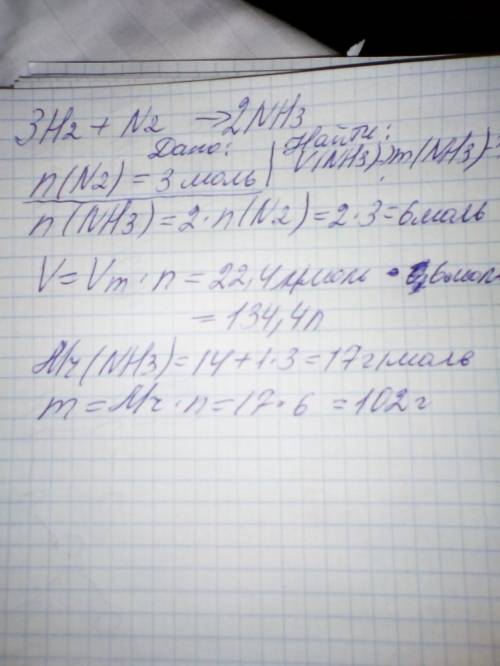 3H2 + N2 → 2NH3
Дано: | Найти:
n(N2) = 3 моль | V(NH3), m(NH3)-?
n(NH3) = 2·n(N2) = 2·3=6моль
V = Vm·n = 22,4 л/моль · 6моль
= 134,4л
Mr(NH3) = 14+1·3 = 17 г/моль
m = Mr·n = 17·6 = 102 г